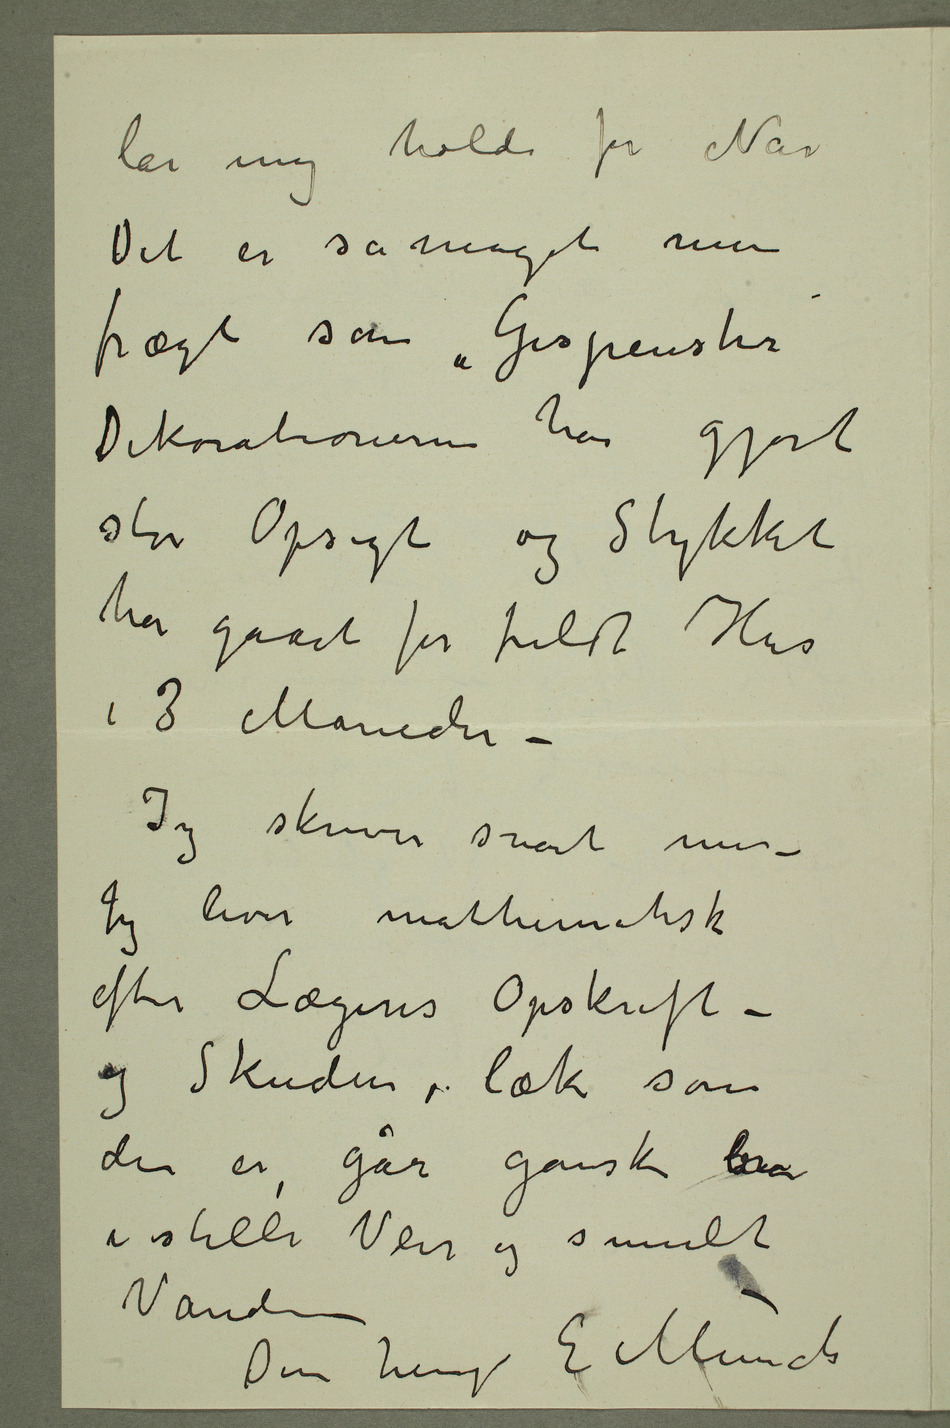 lar mig holde for Nar
Det er så meget mere
frægt som „Gespenster"
Dekorationerne har gjort
stor Opsigt og Stykket
har gaaet for fuldt Hus
i 3 Måneder –
Jeg skriver snart mer –
Jeg lever mathematisk
efter Lægens Opskrift –
og Skuden, læk som
den er, går ganske bra
i stille Veir og smult
Vand –
Din heng E Munch